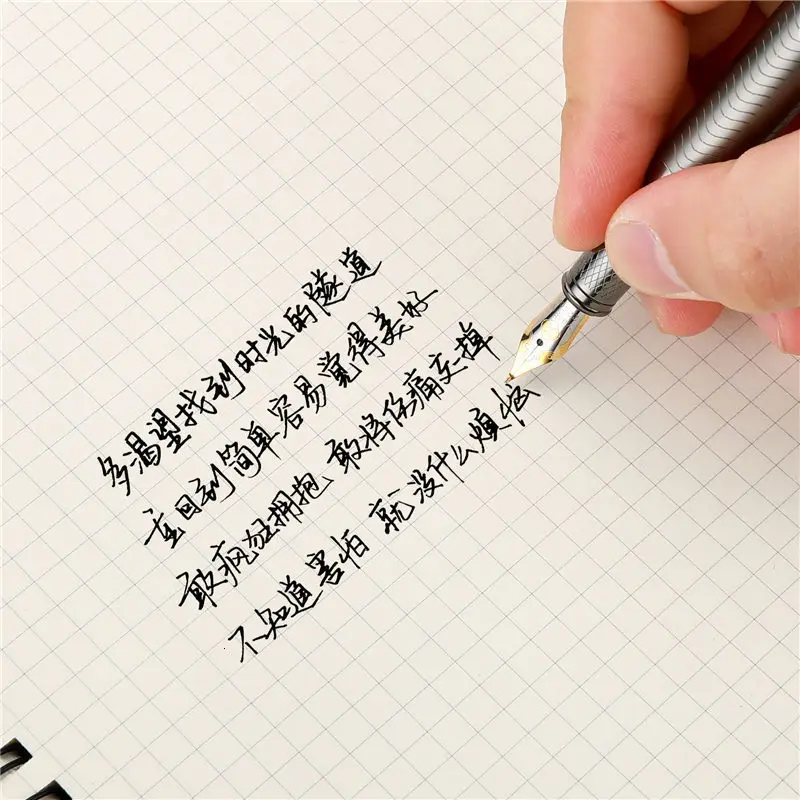 多渴望找到时光的隧道
重回到简单容易觉得美好
敢疯狂拥抱 敢将伤痛交掉
不知道害怕 就没什么烦恼